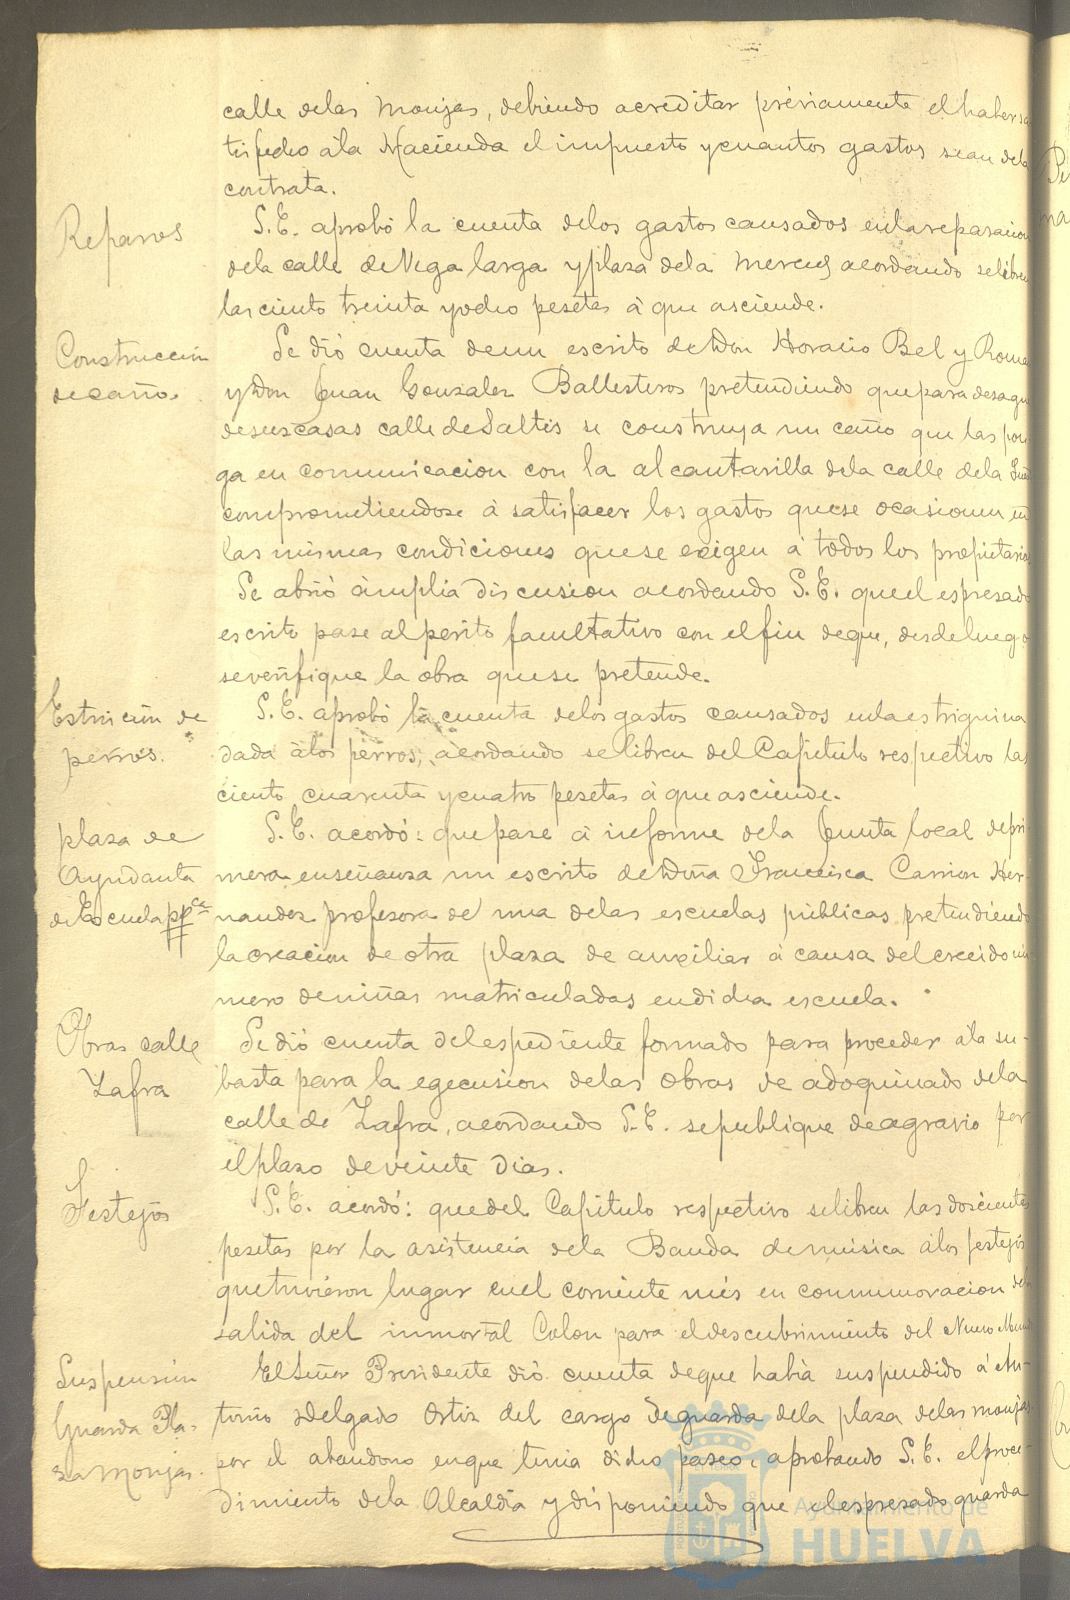 calle delas Monjas, debiendo acreditar préviamente el haber sa
tisfecho ála Hacienda el impuesto y cuantos gastos sean dela
contrata.
Reparos
S.E. aprobó la cuenta delos gastos causados enla reparacion
dela calle de Vega larga y plaza dela Merced acordando se libren
las ciento treinta y ocho pesetas á que asciende.
Construccion
de caño.
Se dió cuenta de un escrito de Don Horacio Bel y Roma
y Don Juan Gonzalez Ballesteros pretendiendo que para desague
de sus casas calle de Saltés se construya un caño que las pon
ga en comunicacion con la alcantarilla dela calle dela
comprometiendose á satisfacer los gastos que se ocasionen en
las mismas condiciones que se exigen á todos los propietarios
Se abrió ámplia discusion acordando S.E. que el espresado
escrito pase al perito facultativo con el fin de que, desde luego
se verifique la obra que se pretende.
Estricnina de
perros.
S.E. aprobó la cuenta delos gastos causados enla estriguina
dada álos perros, acordando se libren del Capitulo respectivo las
ciento cuarenta y cuatro pesetas á que asciende.
plaza de
Ayudanta
de Escuela ppca
S.E. acordó: que pase á informe dela Junta local de pri-
mera enseñanza un escrito de Doña Francisca Carrion Her-
nandez profesora de una delas escuelas públicas pretendiendo
la creacion de otra plaza de auxiliar á causa del crecido nú
mero de niñas matriculadas en dicha escuela.
Obras calle
Zafra
Se dió cuenta del espediente formado para proceder ála su-
basta para la egecusion delas obras de adoquinado dela
calle de Zafra, acordando S.E. se publique de agravio por
el plazo de veinte dias.
Festejos
S.E. acordó: que del Capitulo respectivo se libren las doscientas
pesetas por la asistencia dela Banda de música álos festejos
que tuvieron lugar enel corriente més en conmemoracion dela
salida del inmortal Colon para el descubrimiento del Nuevo Mundo
Suspension
Guarda Pla-
za Monjas.
El Señor Presidente dió cuenta de que habia suspendido á An-
tonio Delgado Ortiz del cargo de guarda dela plaza delas monjas
por el abandono en que tenia dicho paseo, aprobando S.E. el proce-
dimiento dela Alcaldia y disponiendo que el espresado guarda
Ayuntamiento de
HUELVA